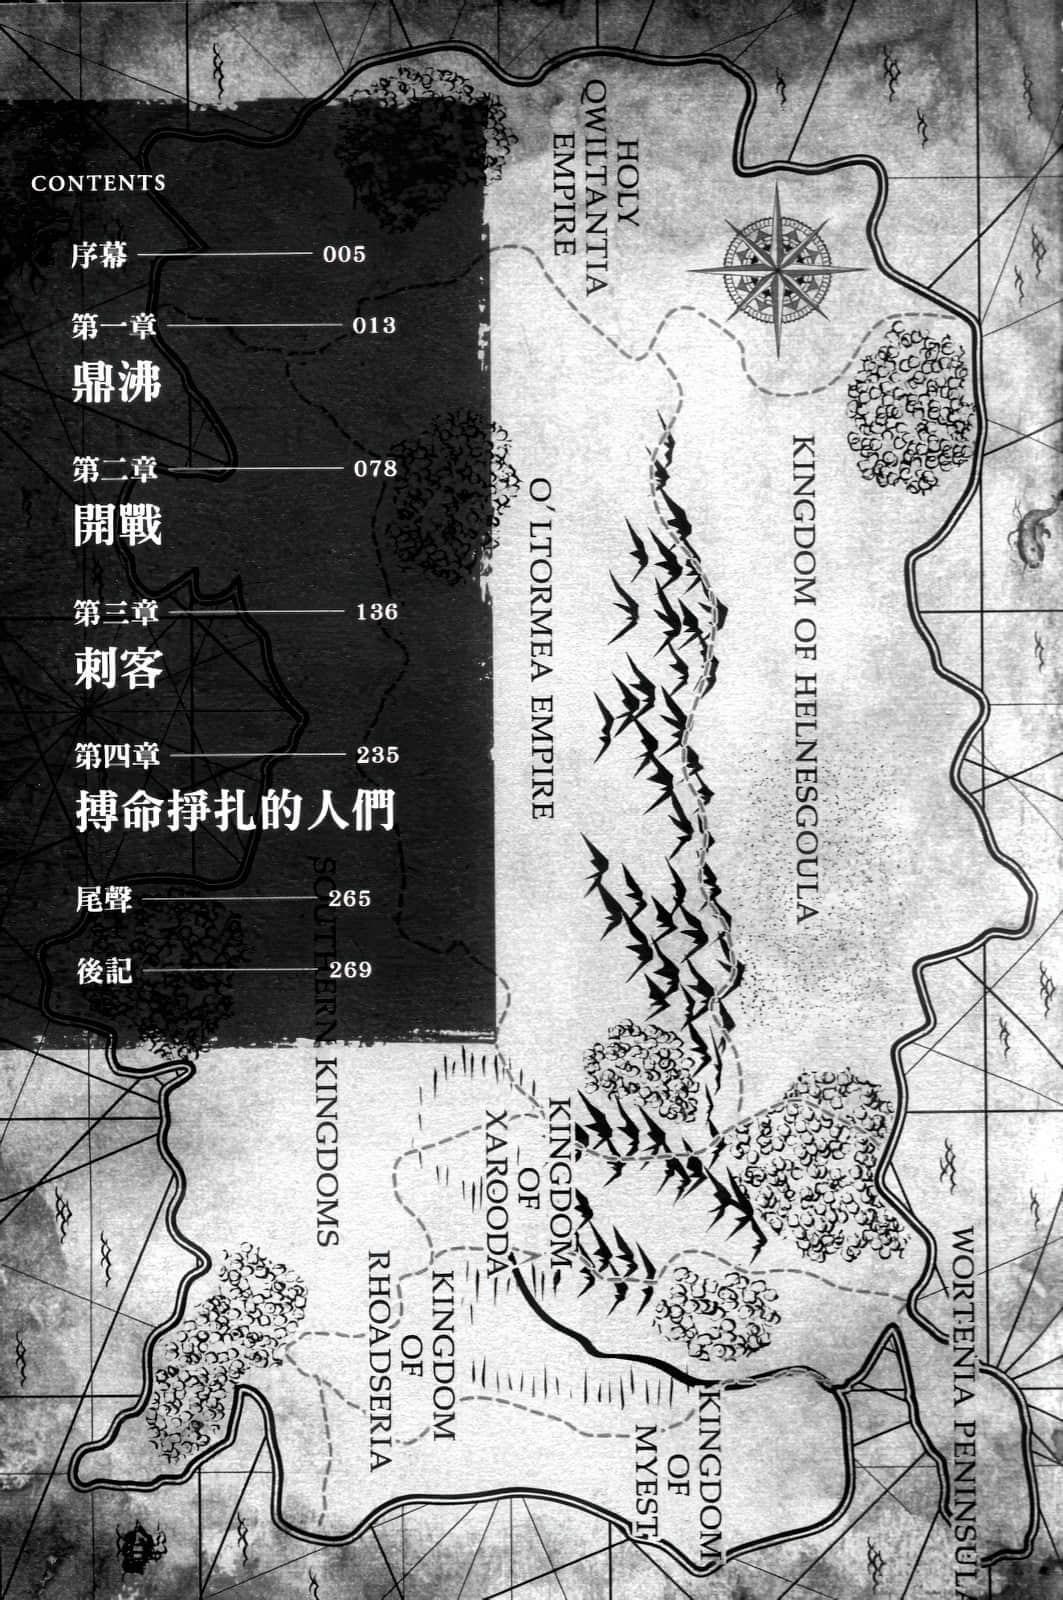 CONTENTS
序幕 005
第一章 013
鼎沸
第二章 078
開戰
第三章 136
刺客
第四章 235
搏命掙扎的人們
尾聲 265
後記 269
HOLY
QWILTANTIA
EMPIRE
KINGDOM OF HELNESGOULA
O'LTORMEA EMPIRE
SOUTHERN KINGDOMS
KINGDOM
OF
XAROODA
KINGDOM
OF
RHOADSERIA
KINGDOM
OF
MYEST
WORTENIA PENINSULA